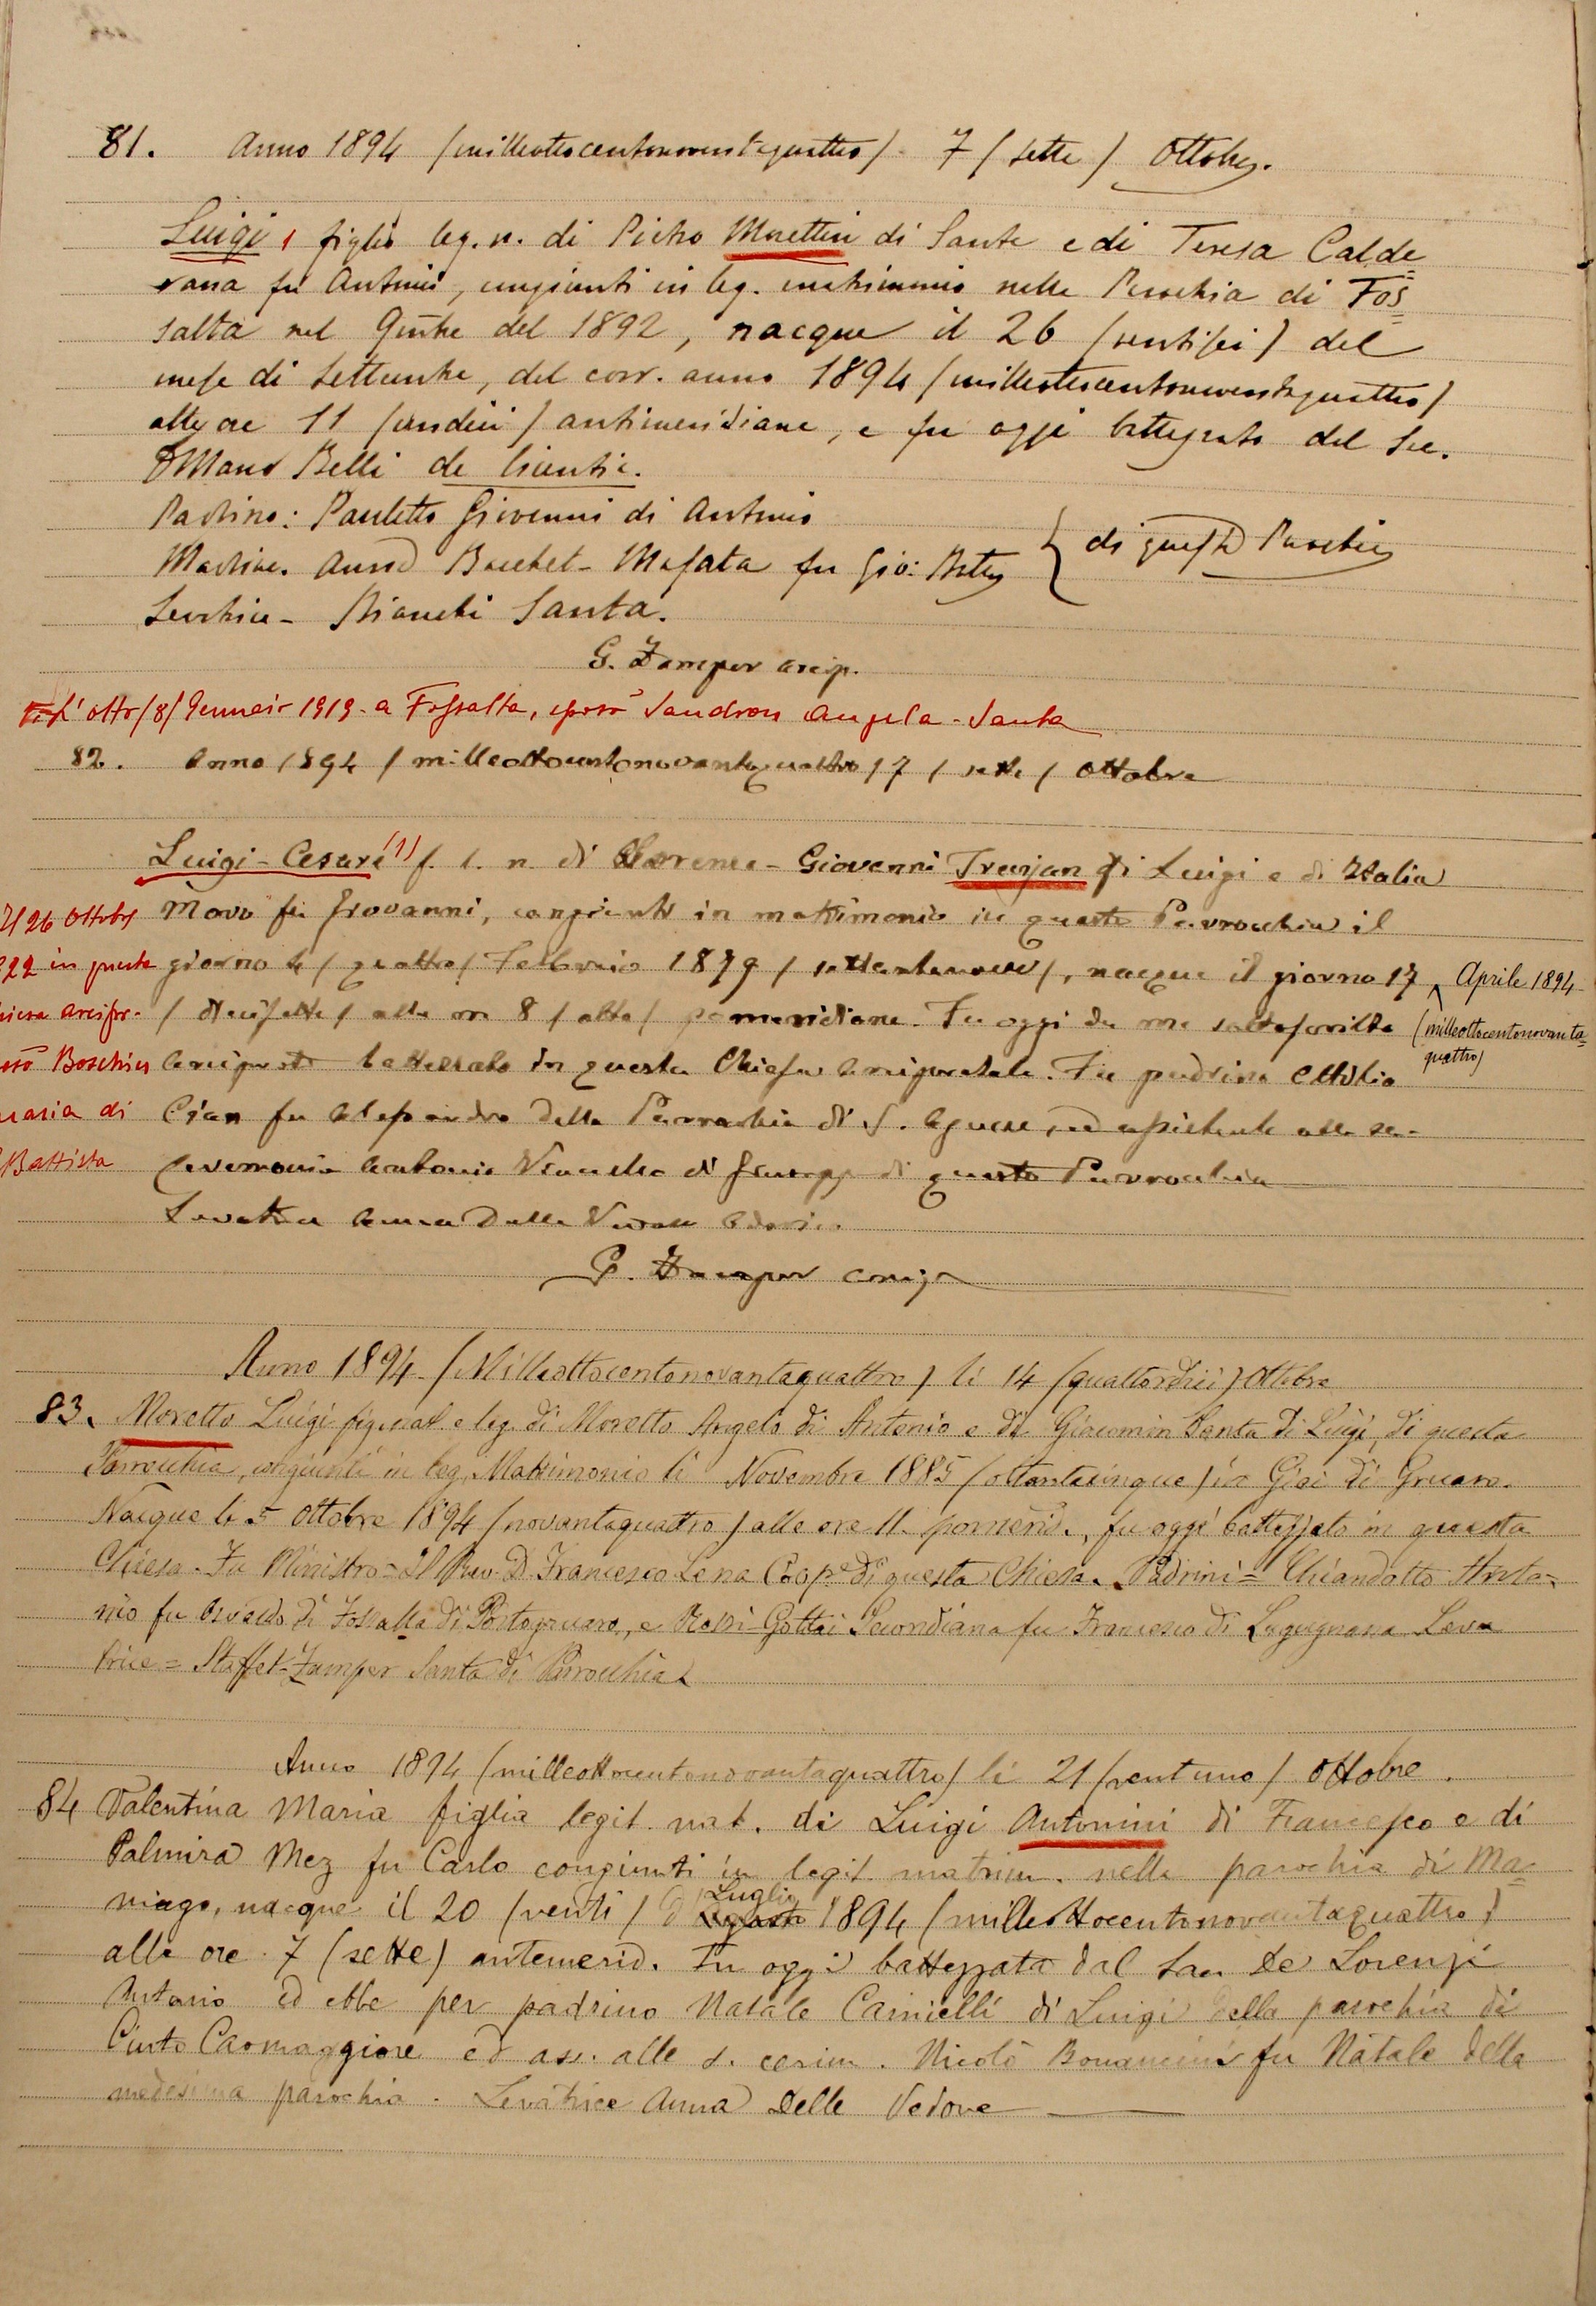 81. Anno 1894 (milleottocentonovantaquattro) 7 (sette) Ottobre.
Luigi, figlio leg. n. di Pietro Morettin di Sante e di Teresa Calde=
rana fu Antonio, congiunti in leg. matrimonio nella Parochia di Fos=
salta nel 9mbre del 1892, nacque il 26 (ventisei) del
mese di Settembre, del corr. anno 1894 (milleottocentonovantaquattro)
alle ore 11 (undici) antimeridiane, e fu oggi battezzato dal Sac.
Belli de licentia.
Padrino: Pauletto Giovanni di Antonio
Madrina. Anna Bucchet- fu Gio: Batta } di questa Parochia
Levatrice - Bianchi Santa.
G. Zamper arcip.
Li otto (8) Gennaio 1919 - a Fossalta, sposò Sandron Angela-Santa
82. Anno 1894 (milleottocentonovantaquattro) 7 (sette) Ottobre
Luigi-Cesare (1) f. l. n. di Giovanni Trevjan di Luigi e di Italia
Il 26 Ottobre
Movo fu Giovanni, congiunti in matrimonio in questa Parrocchia il
922 in questa
giorno 4 (quattro) Febbraio 1879 (settantanove), nacque il giorno 17 Aprile 1894
arcipr.
(diecisette) alle ore 8 (otto) pomeridiane. Fu oggi da me sottoscritto (milleottocentonovanta=
quattro)
Boschin
Arciprete battezzato in questa Chiesa Arcipretale. Fu padrino Attilio
Maria di
Cian fu Alessandro della Parrochia di S. Agnese, ed assistente alla sa.
Battista
cerimonia Antonio di Giuseppe di questa Parrocchia
Levatrice Anna Delle Vedove
G. Zamper arcip.
Anno 1894 (Milleottocentonovantaquattro) li 14 (quattordici) Ottobre
83. Moretto Luigi fig. nat. e leg. di Moretto Angelo di Antonio e di Giacomin Santa di Luigi, di questa
Parrocchia, congiunti in leg. Matrimonio li Novembre 1885 (ottantacinque) in Giai di Gruaro.
Nacque li 5 Ottobre 1894 (novantaquattro) alle ore 11. pomerid., fu oggi battezzato in questa
Chiesa. Fu Ministro = il Rev. D. Francesco Lena Coop.e di questa Chiesa. Padrini = Chiandotto Anto=
nio fu Osvaldo di Fossalta di Portogruaro, e Secondiana fu Francesco di Lugugnana Leva
trice = Staffet-Zamper Santa di Parrocchia.
Anno 1894 (milleottocentonovantaquattro) li 21 (ventuno) Ottobre.
84 Valentina Maria figlia legit. nat. di Luigi Antonini di Francesco e di
Palmira Mez fu Carlo congiunti in legit. matrim. nella parochia di Ma=
niago, nacque il 20 (venti) Luglio 1894 (milleottocentonovantaquattro)
alle ore 7 (sette) antemerid. Fu oggi battezzata dal Sac De Lorenzi
Antonio ed ebbe per padrino Natale Cainielli di Luigi della parochia di
Cinto Caomaggiore ed ass. alle s. cerim. Nicolò Bonancini fu Natale della
medesima parochia. Levatrice Anna Delle Vedove